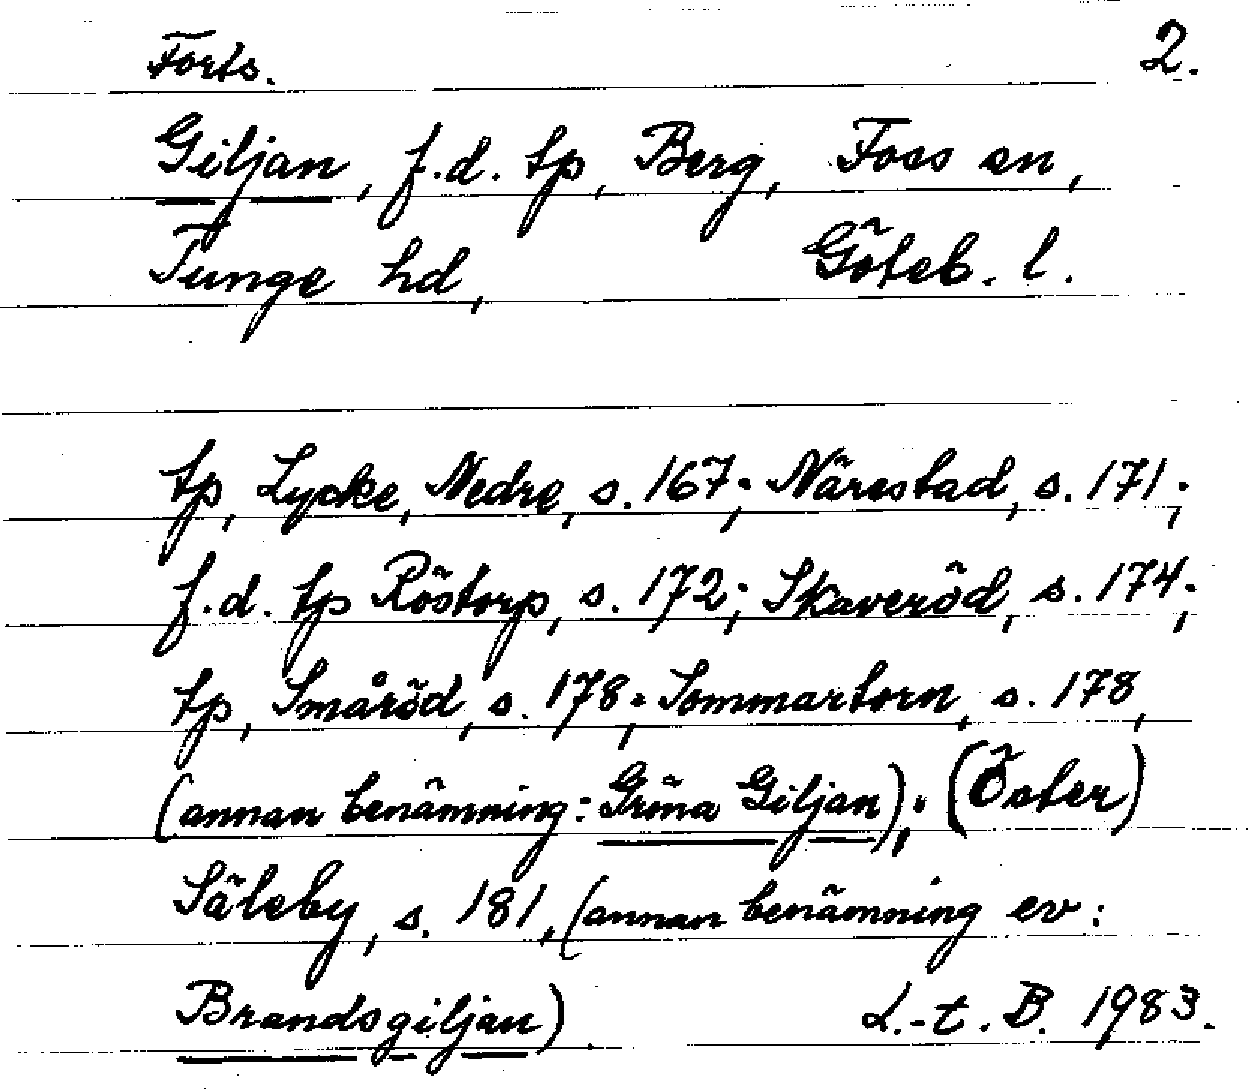 Forts. 2.
Giljan, f.d. tp, Berg, Foss sn,
Tunge hd, Göteb. l.
tp, Lycke, Nedre, s. 167; Närestad, s. 171;
f.d. tp Röstorp, s. 172; Skaveröd, s. 174;
tp, Småröd, s. 178; Sommartorn, s. 178,
(annan benämning: Gröna Giljan); (Öster)
Säleby, s. 181, (annan benämning ev:
Brandsgiljan). L.-t. B. 1983.